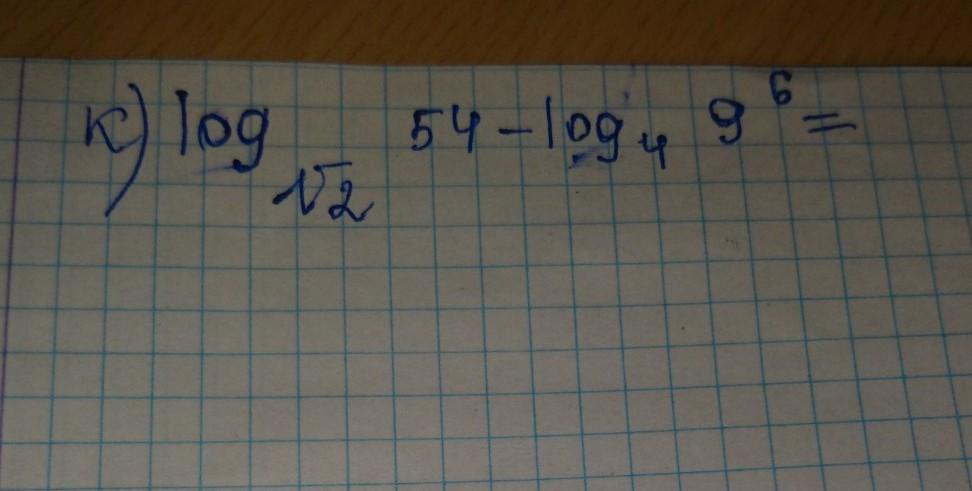 к) log√2 54 - log₄ 9⁶ =